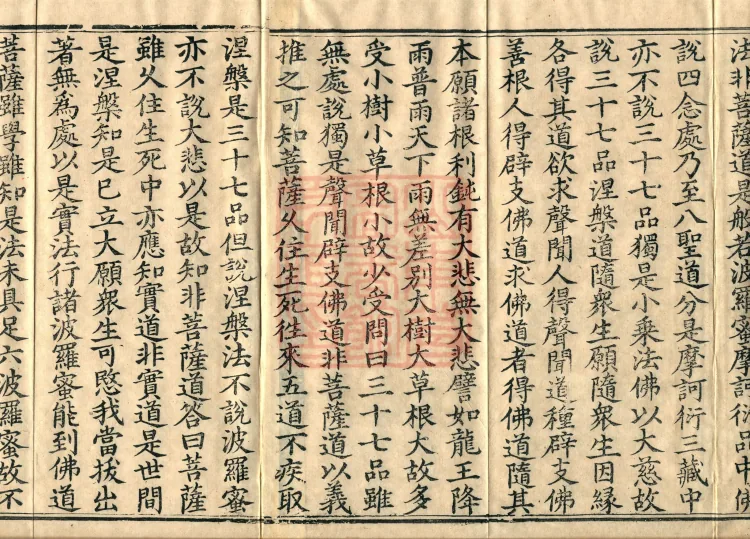 法非菩薩道是般若波羅蜜摩訶衍品中佛
說四念處乃至八聖道分是摩訶衍三藏中
亦不說三十七品獨是小乘法佛以大慈故
說三十七品涅槃道隨衆生願隨衆生因緣
各得其道欲求聲聞人得聲聞道種辟支佛
善根人得辟支佛道求佛道者得佛道隨其
本願諸根利鈍有大悲無大悲譬如龍王降
雨普雨天下雨無差別大樹大草根大故多
受小樹小草根小故少受問曰三十七品雖
無處說獨是聲聞辟支佛道非菩薩道以義
推之可知菩薩久住生死往來五道不疾取
涅槃是三十七品但說涅槃法不說波羅蜜
亦不說大悲以是故知非菩薩道答曰菩薩
雖久住生死中亦應知實道非實道是世間
是涅槃知是已立大願衆生可愍我當拔出
著無為處以是實法行諸波羅蜜能到佛道
菩薩雖學雖知是法未具足六波羅蜜故不